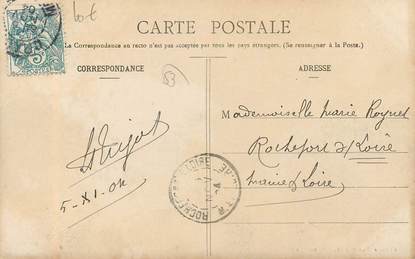 CARTE POSTALE
La Correspondance au recto n'est pas acceptée par tous les pays étrangers. (Se renseigner à la Poste.)
CORRESPONDANCE
ADRESSE
53
5-XI-04
Mademoiselle Marie
Rochefort s/ Loire
Maine & Loire